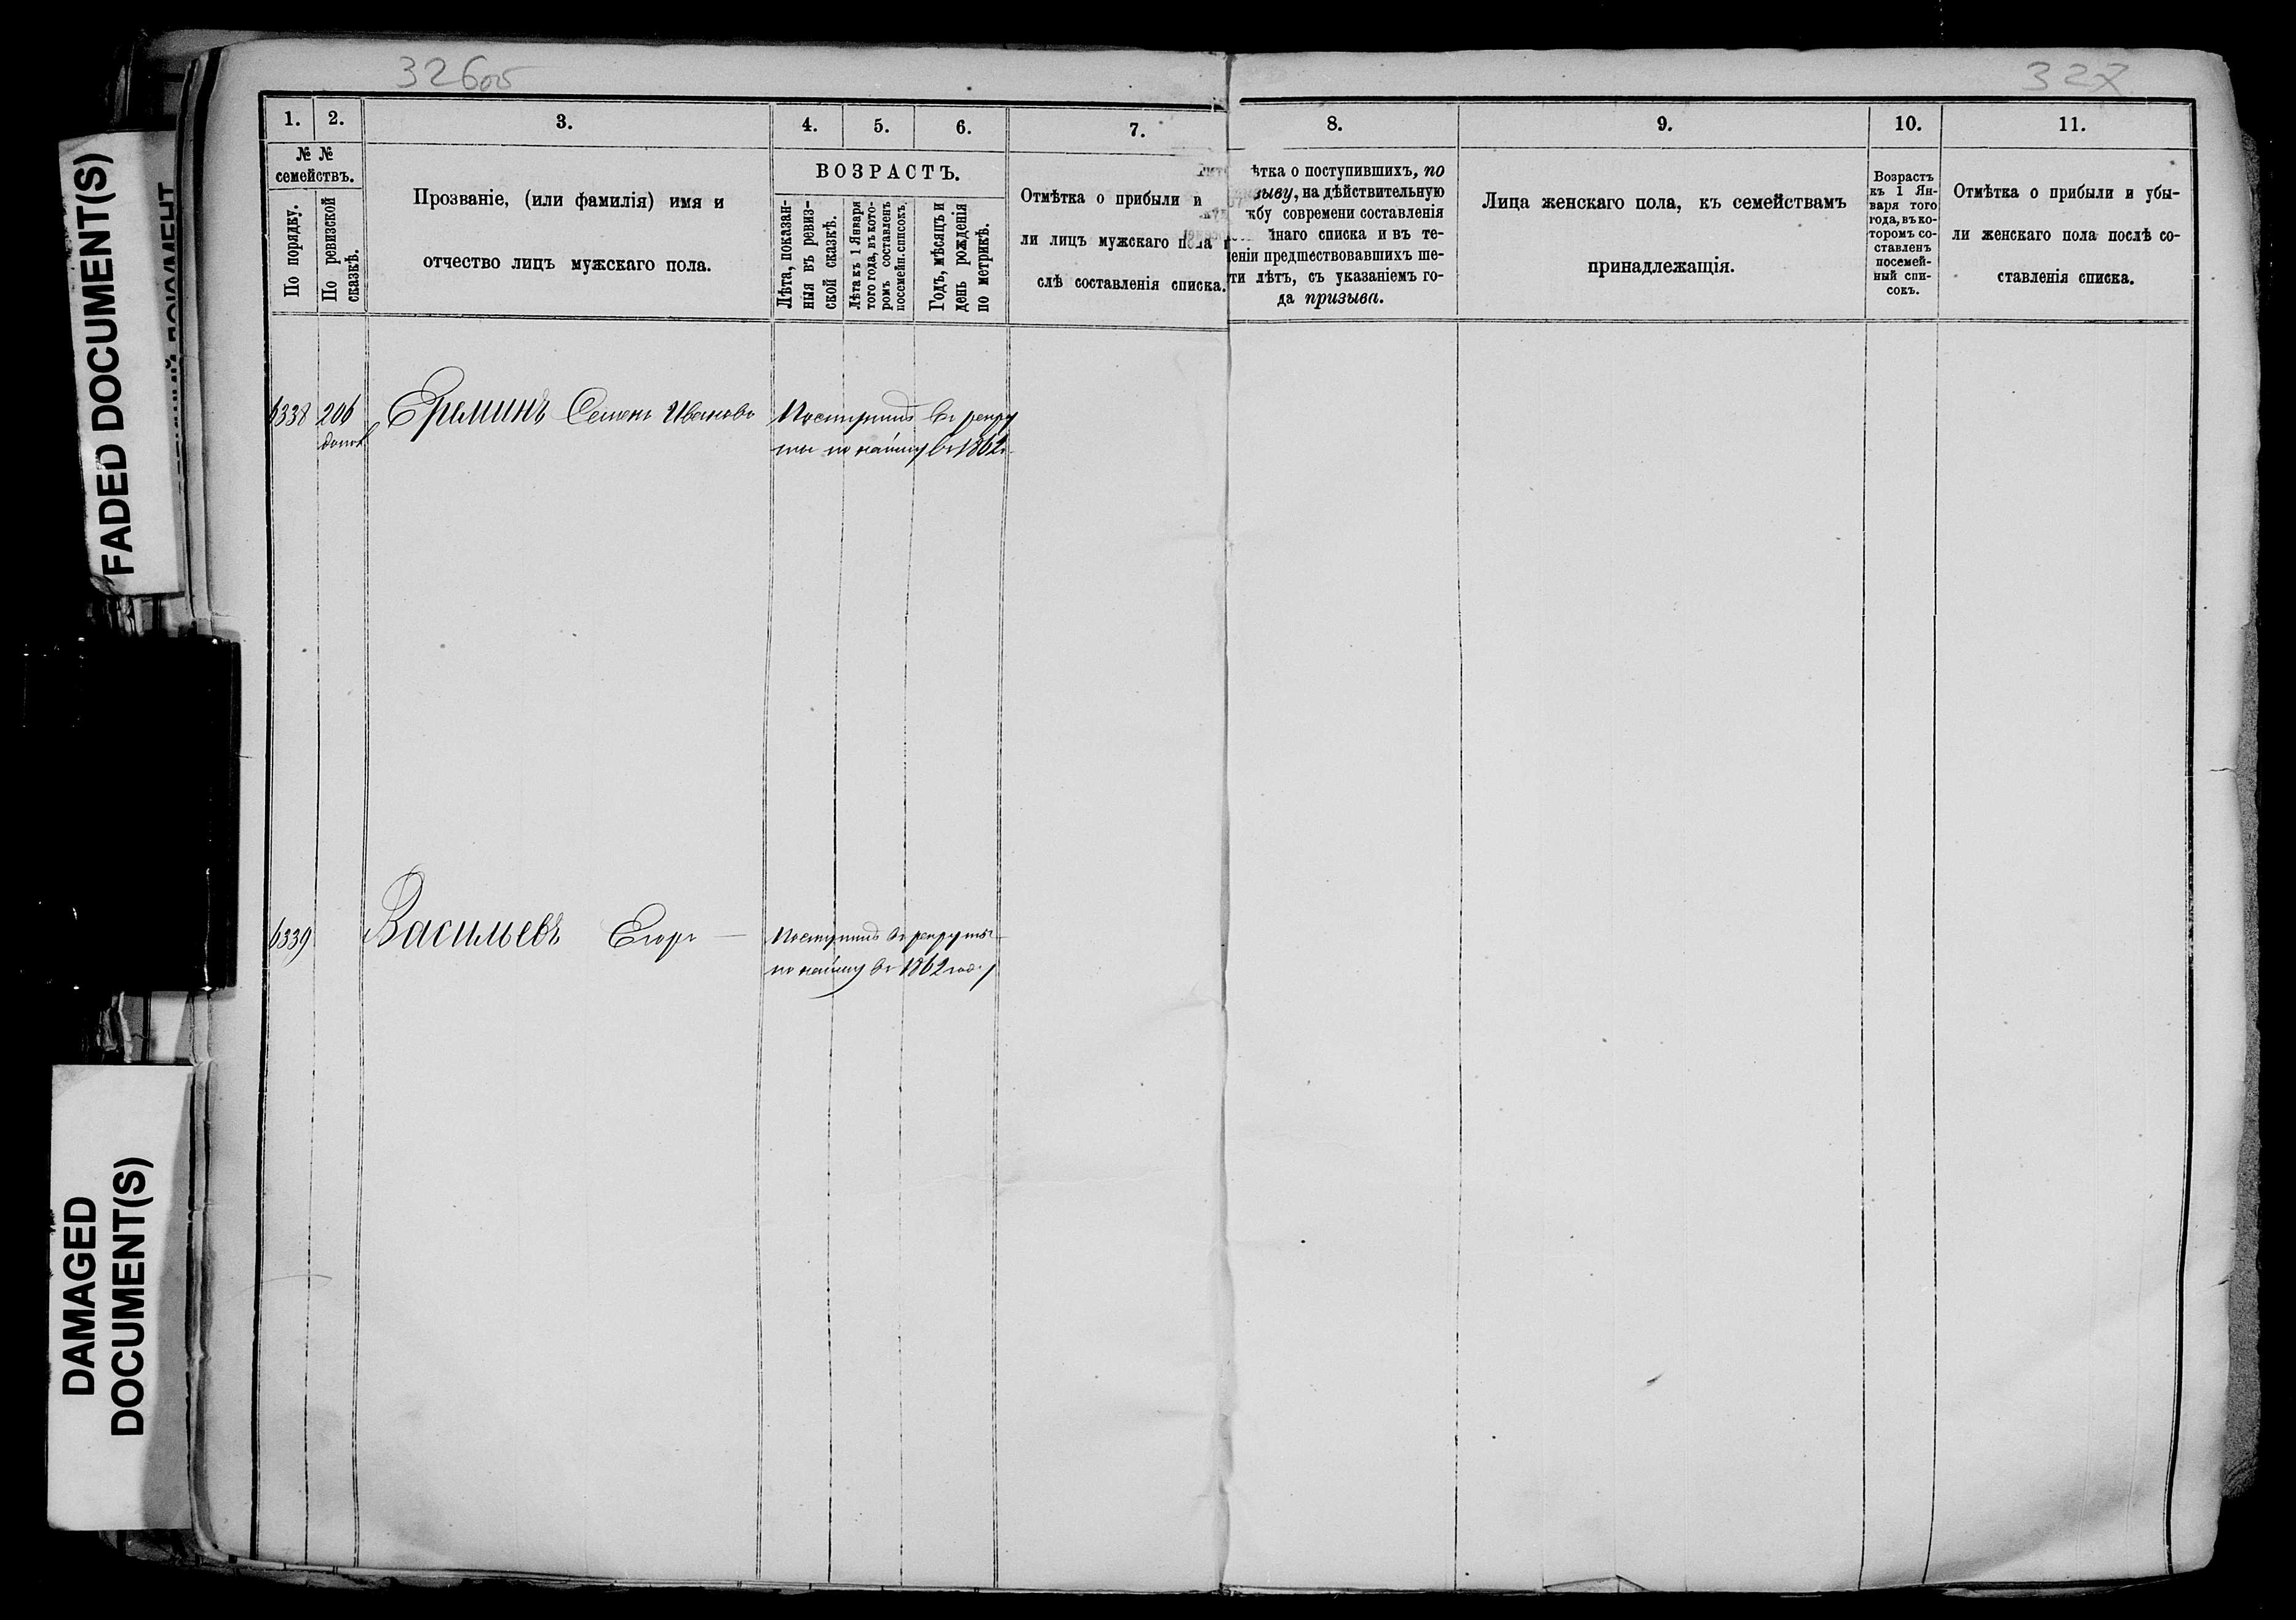 326об
327
FADED DOCUMENT(S)
DAMAGED
DOCUMENT(S)
1.
2.
3.
4.
5.
6.
7.
8.
9.
10.
11.
№ №
семействъ.
По порядку.
По ревизской
сказкѣ.
Прозваніе, (или фамилія) имя и
отчество лицъ мужскаго пола.
ВОЗРАСТЪ.
Лѣта, показан-
ныя въ ревиз-
ской сказкѣ.
Лѣта къ 1 Января
того года, въ кото-
ромъ составленъ
посемейн. списокъ.
Годъ, мѣсяцъ и
день рожденія
по метрикѣ.
Отмѣтка о прибыли и
ли лицъ мужскаго пола
слѣ составленія списка.
ѣтка о поступившихъ, по
зыву, на дѣйствительную
жбу современи составленія
йнаго списка и въ те-
ченіи предшествовавшихъ ше-
ти лѣтъ, съ указаніемъ го-
да призыва.
Лица женскаго пола, къ семействамъ
принадлежащія.
Возрастъ
къ 1 Ян-
варя того
года, въ ко-
торомъ со-
ставленъ
посемей-
ный спи-
сокъ.
Отмѣтка о прибыли и убы-
ли женскаго пола послѣ со-
ставленія списка.
6338 206 Ереминъ Семенъ Ивановъ Поступилъ въ рекру
ты по найму въ 1862г.
6339 Васильевъ Егоръ — Поступилъ въ рекруты
по найму въ 1862 году